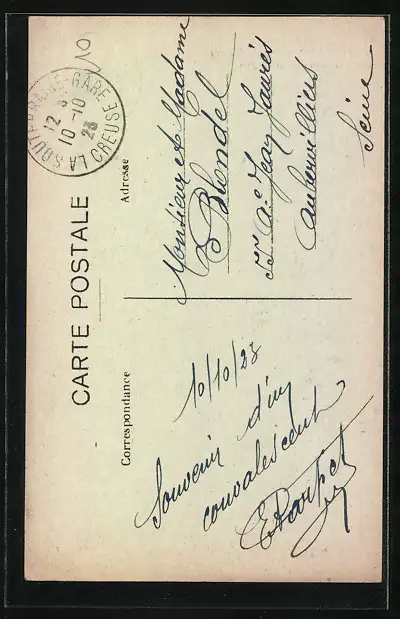 CARTE POSTALE
Correspondance
10/10/23
Souvenir d'un
convalescent
Adresse
Monsieur et Madame
Blondel
Av. Jean Jaurès
Aubervilliers
Seine
LA SOUTERRAINE-GARE
12
10 -10
23
CREUSE